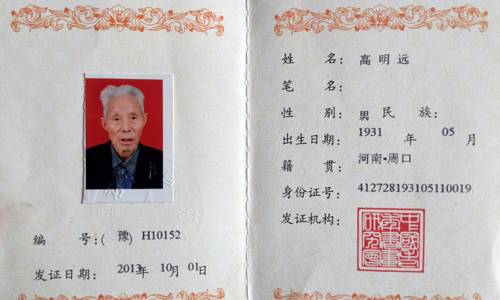 编 号:(豫)H10152
发证日期: 2013年10月01日
姓 名: 高明远
笔 名:
性 别: 男 民 族:
出生日期: 1931 年 05 月
籍 贯: 河南·周口
身份证号: 412728193105110019
发证机构: